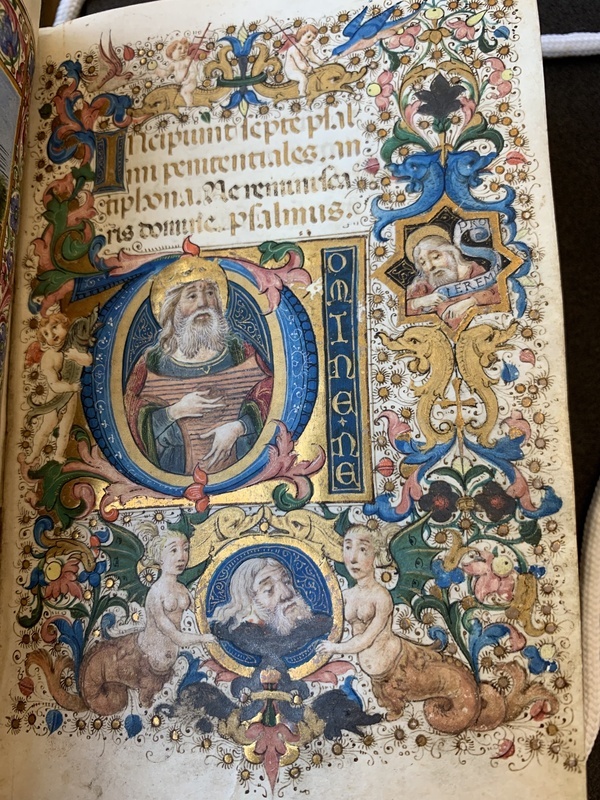 INcipiunt septe psal
mi penitentiales. an
tiphona. Ne reminisca
ris domine. psalmus.
DOMINE·NE
IEREMI